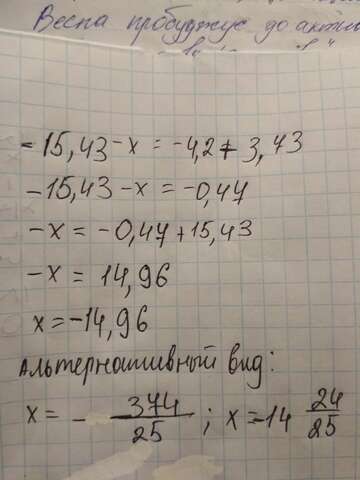 Весна пробуджує до актив
-15,43-x = -4,2+3,73
-15,43-x = -0,47
-x = -0,47+15,43
-x = 14,96
x=-14,96
Альтернативный вид:
x= - 374/25 ; x=-14 24/25